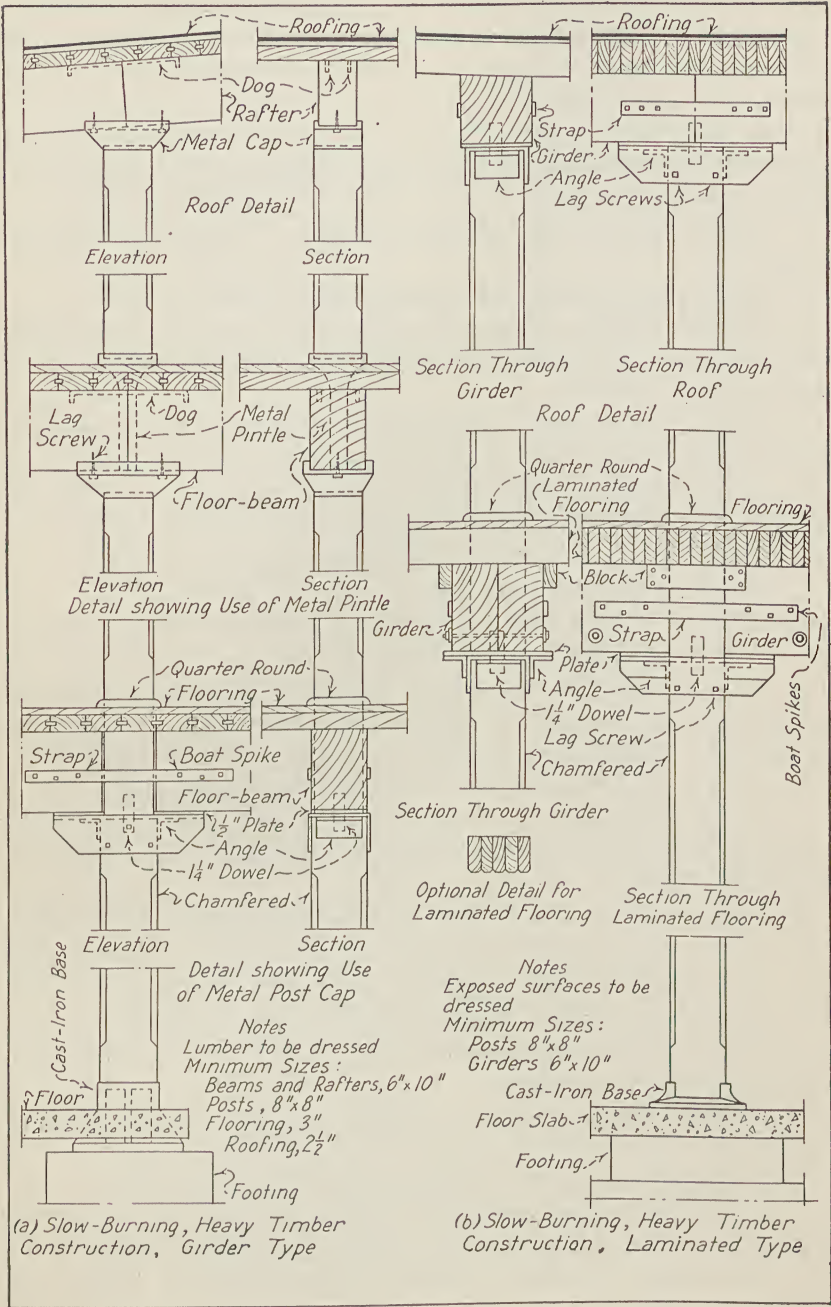 Roofing
Dog
Rafter
Metal Cap
Roof Detail
Elevation
Section
Lag
Screw
Dog
Metal
Pintle
Floor-beam
Elevation
Section
Detail showing Use of Metal Pintle
Quarter Round
Flooring
Strap
Boat Spike
Floor-beam
1/2" Plate
Angle
1 1/4" Dowel
Chamfered
Elevation
Section
Detail showing Use
of Metal Post Cap
Cast-Iron Base
Notes
Lumber to be dressed
Minimum Sizes:
Beams and Rafters, 6"x10"
Posts, 8"x8"
Flooring, 3"
Roofing, 2 1/2"
Floor
Footing
(a) Slow-Burning, Heavy Timber
Construction, Girder Type
Roofing
Strap
Girder
Angle
Lag Screws
Section Through
Girder
Section Through
Roof
Roof Detail
Quarter Round
Laminated
Flooring
Flooring
Block
Girder
Strap
Girder
Plate
Angle
1 1/4" Dowel
Lag Screw
Chamfered
Boat Spikes
Section Through Girder
Optional Detail for
Laminated Flooring
Section Through
Laminated Flooring
Notes
Exposed surfaces to be
dressed
Minimum Sizes:
Posts 8"x8"
Girders 6"x10"
Cast-Iron Base
Floor Slab
Footing
(b) Slow-Burning, Heavy Timber
Construction, Laminated Type